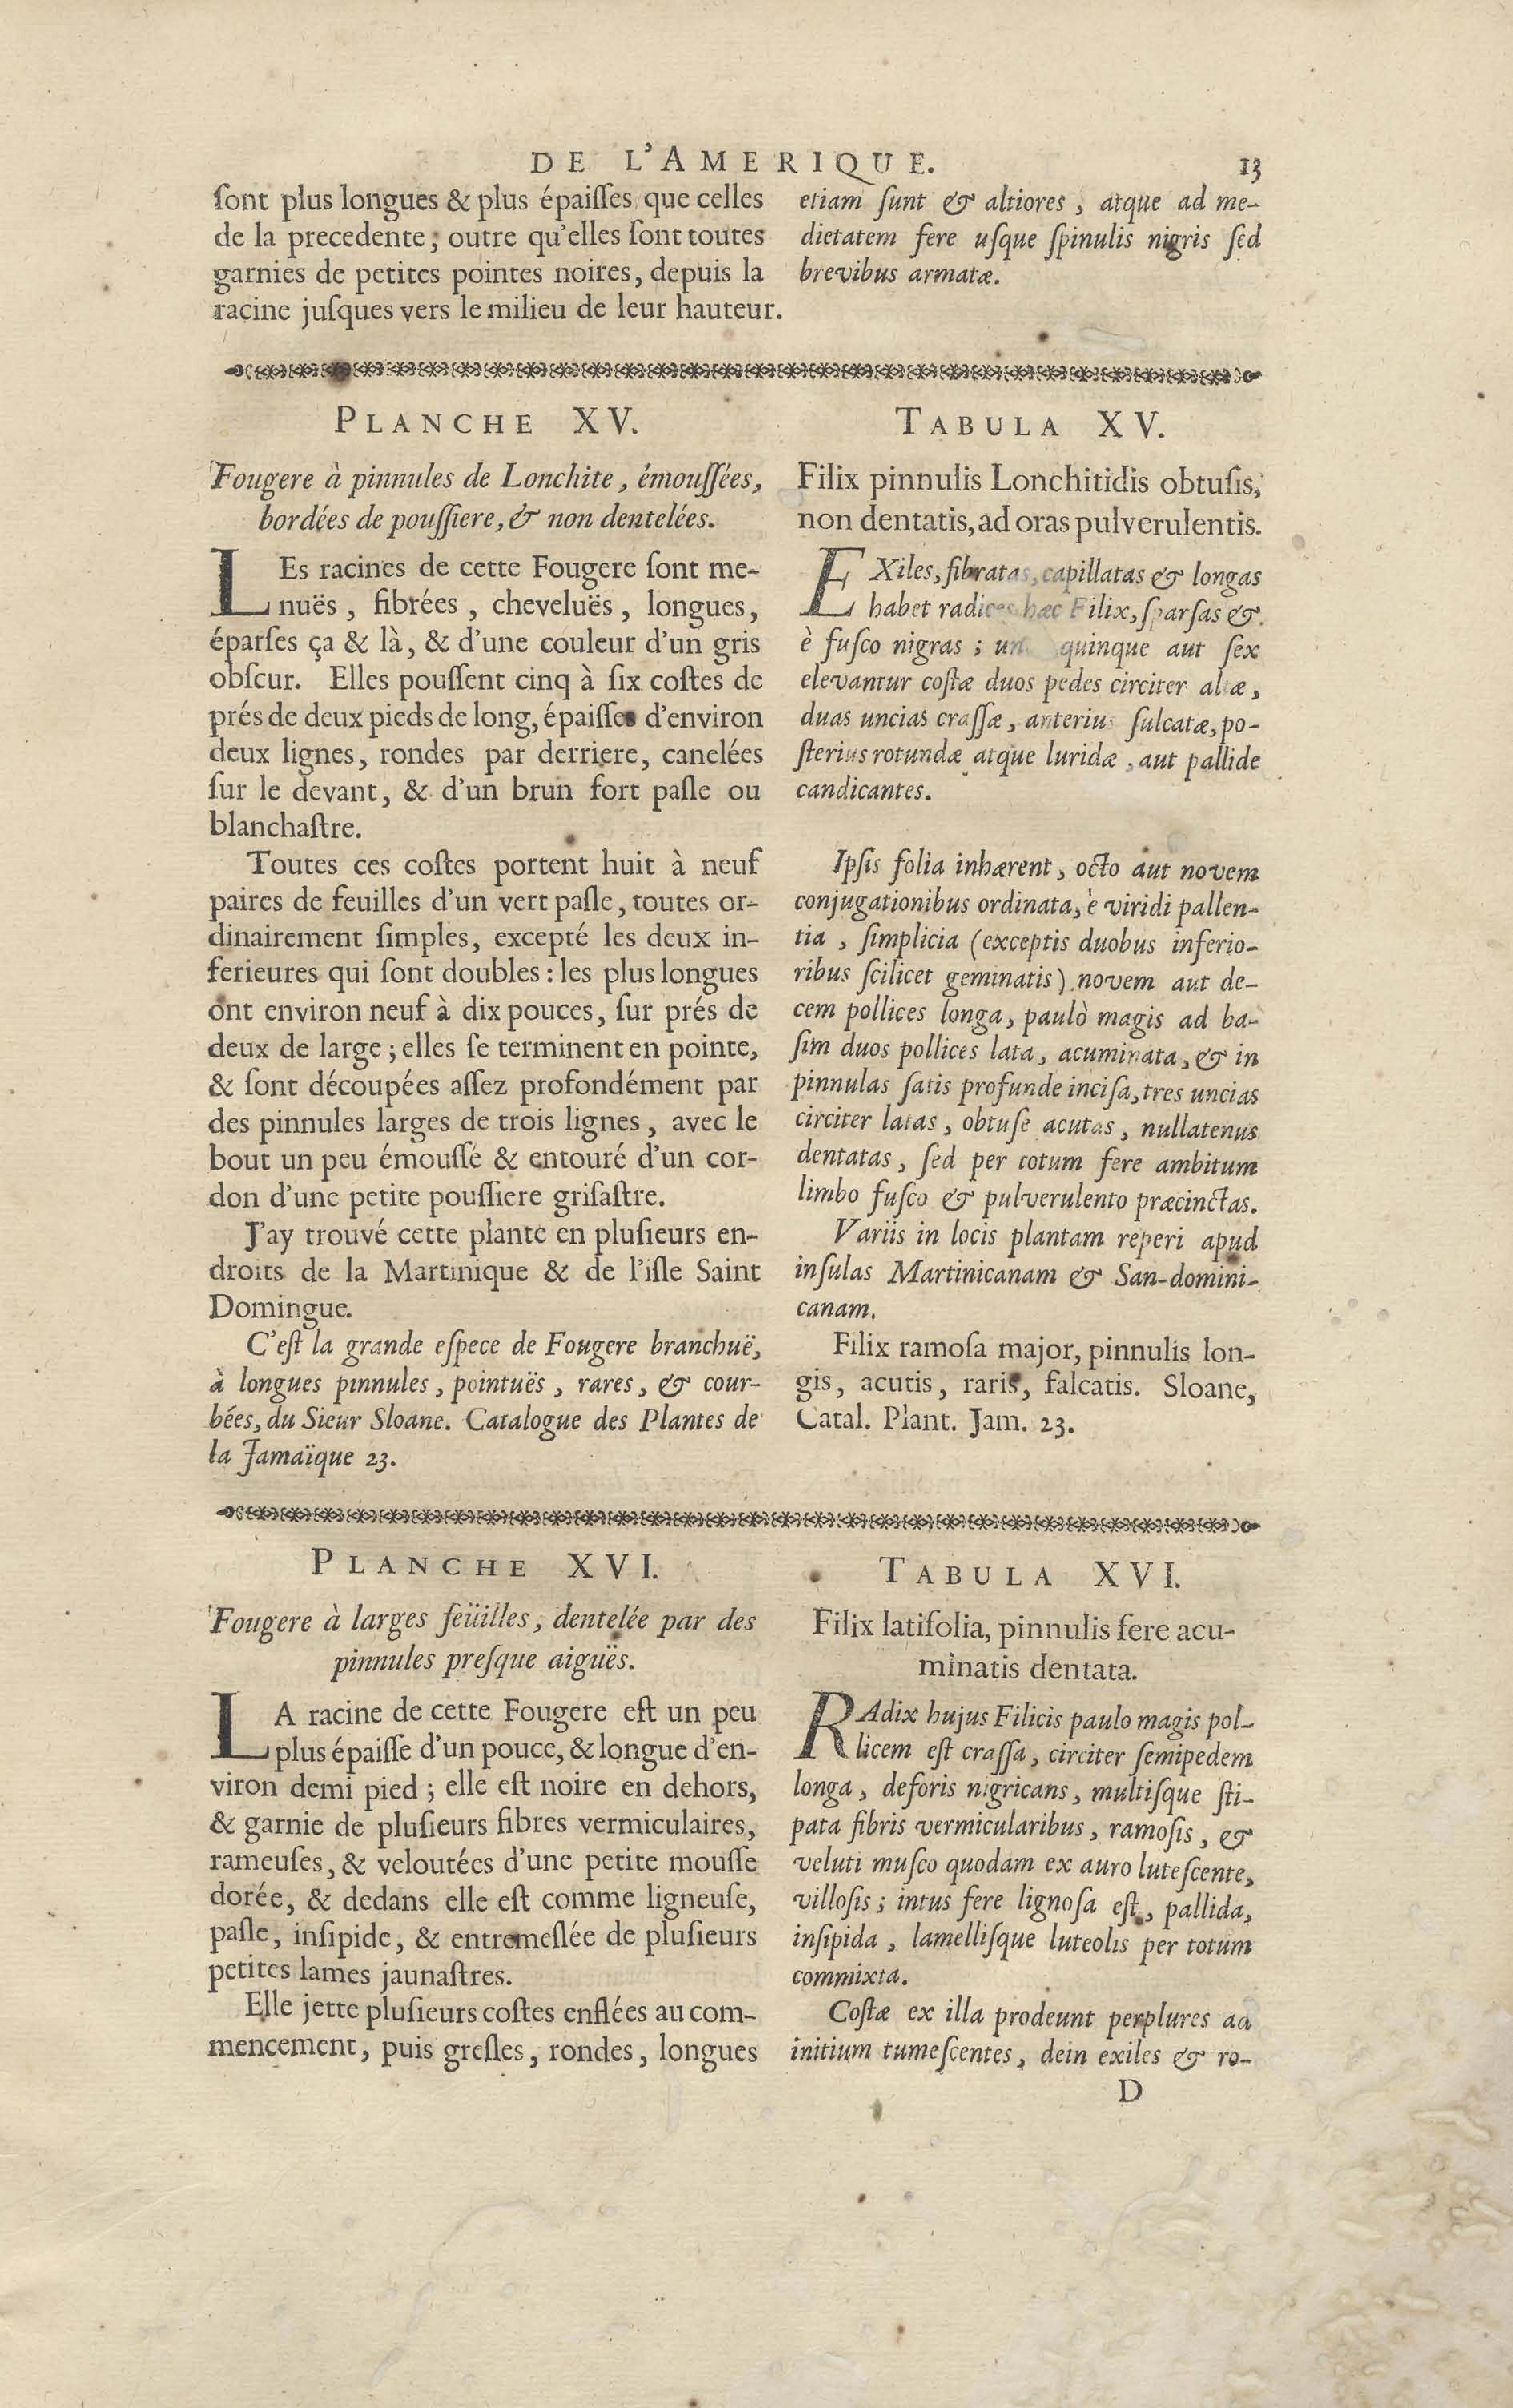 DE L'AMERIQUE. 13
ſont plus longues & plus épaiſſes que celles
de la precedente; outre qu'elles ſont toutes
garnies de petites pointes noires, depuis la
racine juſques vers le milieu de leur hauteur.
etiam ſunt & altiores, atque ad me-
dietatem fere uſque ſpinulis nigris ſed
brevibus armatæ.
PLANCHE XV.
Fougere à pinnules de Lonchite, émouſſées,
bordées de pouſſiere, & non dentelées.
LEs racines de cette Fougere ſont me-
nuës, fibrées, cheveluës, longues,
éparſes ça & là, & d'une couleur d'un gris
obſcur. Elles pouſſent cinq à ſix coſtes de
prés de deux pieds de long, épaiſſes d'environ
deux lignes, rondes par derriere, canelées
ſur le devant, & d'un brun fort paſle ou
blanchaſtre.
Toutes ces coſtes portent huit à neuf
paires de feuilles d'un vert paſle, toutes or-
dinairement ſimples, excepté les deux in-
ferieures qui ſont doubles: les plus longues
ont environ neuf à dix pouces, ſur prés de
deux de large; elles ſe terminent en pointe,
& ſont découpées aſſez profondément par
des pinnules larges de trois lignes, avec le
bout un peu émouſſé & entouré d'un cor-
don d'une petite pouſſiere griſaſtre.
J'ay trouvé cette plante en pluſieurs en-
droits de la Martinique & de l'iſle Saint
Domingue.
C'eſt la grande eſpece de Fougere branchuë,
à longues pinnules, pointuës, rares, & cour-
bées, du Sieur Sloane. Catalogue des Plantes de
la Jamaïque 23.
TABULA XV.
Filix pinnulis Lonchitidis obtuſis,
non dentatis, ad oras pulverulentis.
EXiles, fibratas, capillatas & longas
habet radices hæc Filix, ſparſas &
è fuſco nigras; quinque aut ſex
elevantur coſtæ duos pedes circiter altæ,
duas uncias craſſæ, anterius ſulcatæ, po-
ſterius rotundæ atque luridæ, aut pallide
candicantes.
Ipſis folia inhærent, octo aut novem
conjugationibus ordinata, è viridi pallen-
tia, ſimplicia (exceptis duobus inferio-
ribus ſcilicet geminatis) novem aut de-
cem pollices longa, paulò magis ad ba-
ſim duos pollices lata, acuminata, & in
pinnulas ſatis profunde inciſa, tres uncias
circiter latas, obtuſe acutas, nullatenus
dentatas, ſed per totum fere ambitum
limbo fuſco & pulverulento præcinctas.
Variis in locis plantam reperi apud
inſulas Martinicanam & San-domini-
canam.
Filix ramoſa major, pinnulis lon-
gis, acutis, raris, falcatis. Sloane,
Catal. Plant. Jam. 23.
PLANCHE XVI.
Fougere à larges feüilles, dentelée par des
pinnules preſque aiguës.
LA racine de cette Fougere eſt un peu
plus épaiſſe d'un pouce, & longue d'en-
viron demi pied; elle eſt noire en dehors,
& garnie de pluſieurs fibres vermiculaires,
rameuſes, & veloutées d'une petite mouſſe
dorée, & dedans elle eſt comme ligneuſe,
paſle, inſipide, & entremeſlée de pluſieurs
petites lames jaunaſtres.
Elle jette pluſieurs coſtes enflées au com-
mencement, puis greſles, rondes, longues
TABULA XVI.
Filix latifolia, pinnulis fere acu-
minatis dentata.
RAdix hujus Filicis paulo magis pol-
licem eſt craſſa, circiter ſemipedem
longa, deforis nigricans, multiſque ſti-
pata fibris vermicularibus, ramoſis, &
veluti muſco quodam ex auro luteſcente,
villoſis; intus fere lignoſa eſt, pallida,
inſipida, lamelliſque luteolis per totum
commixta.
Coſtæ ex illa prodeunt perplures ad
initium tumeſcentes, dein exiles & ro-
D